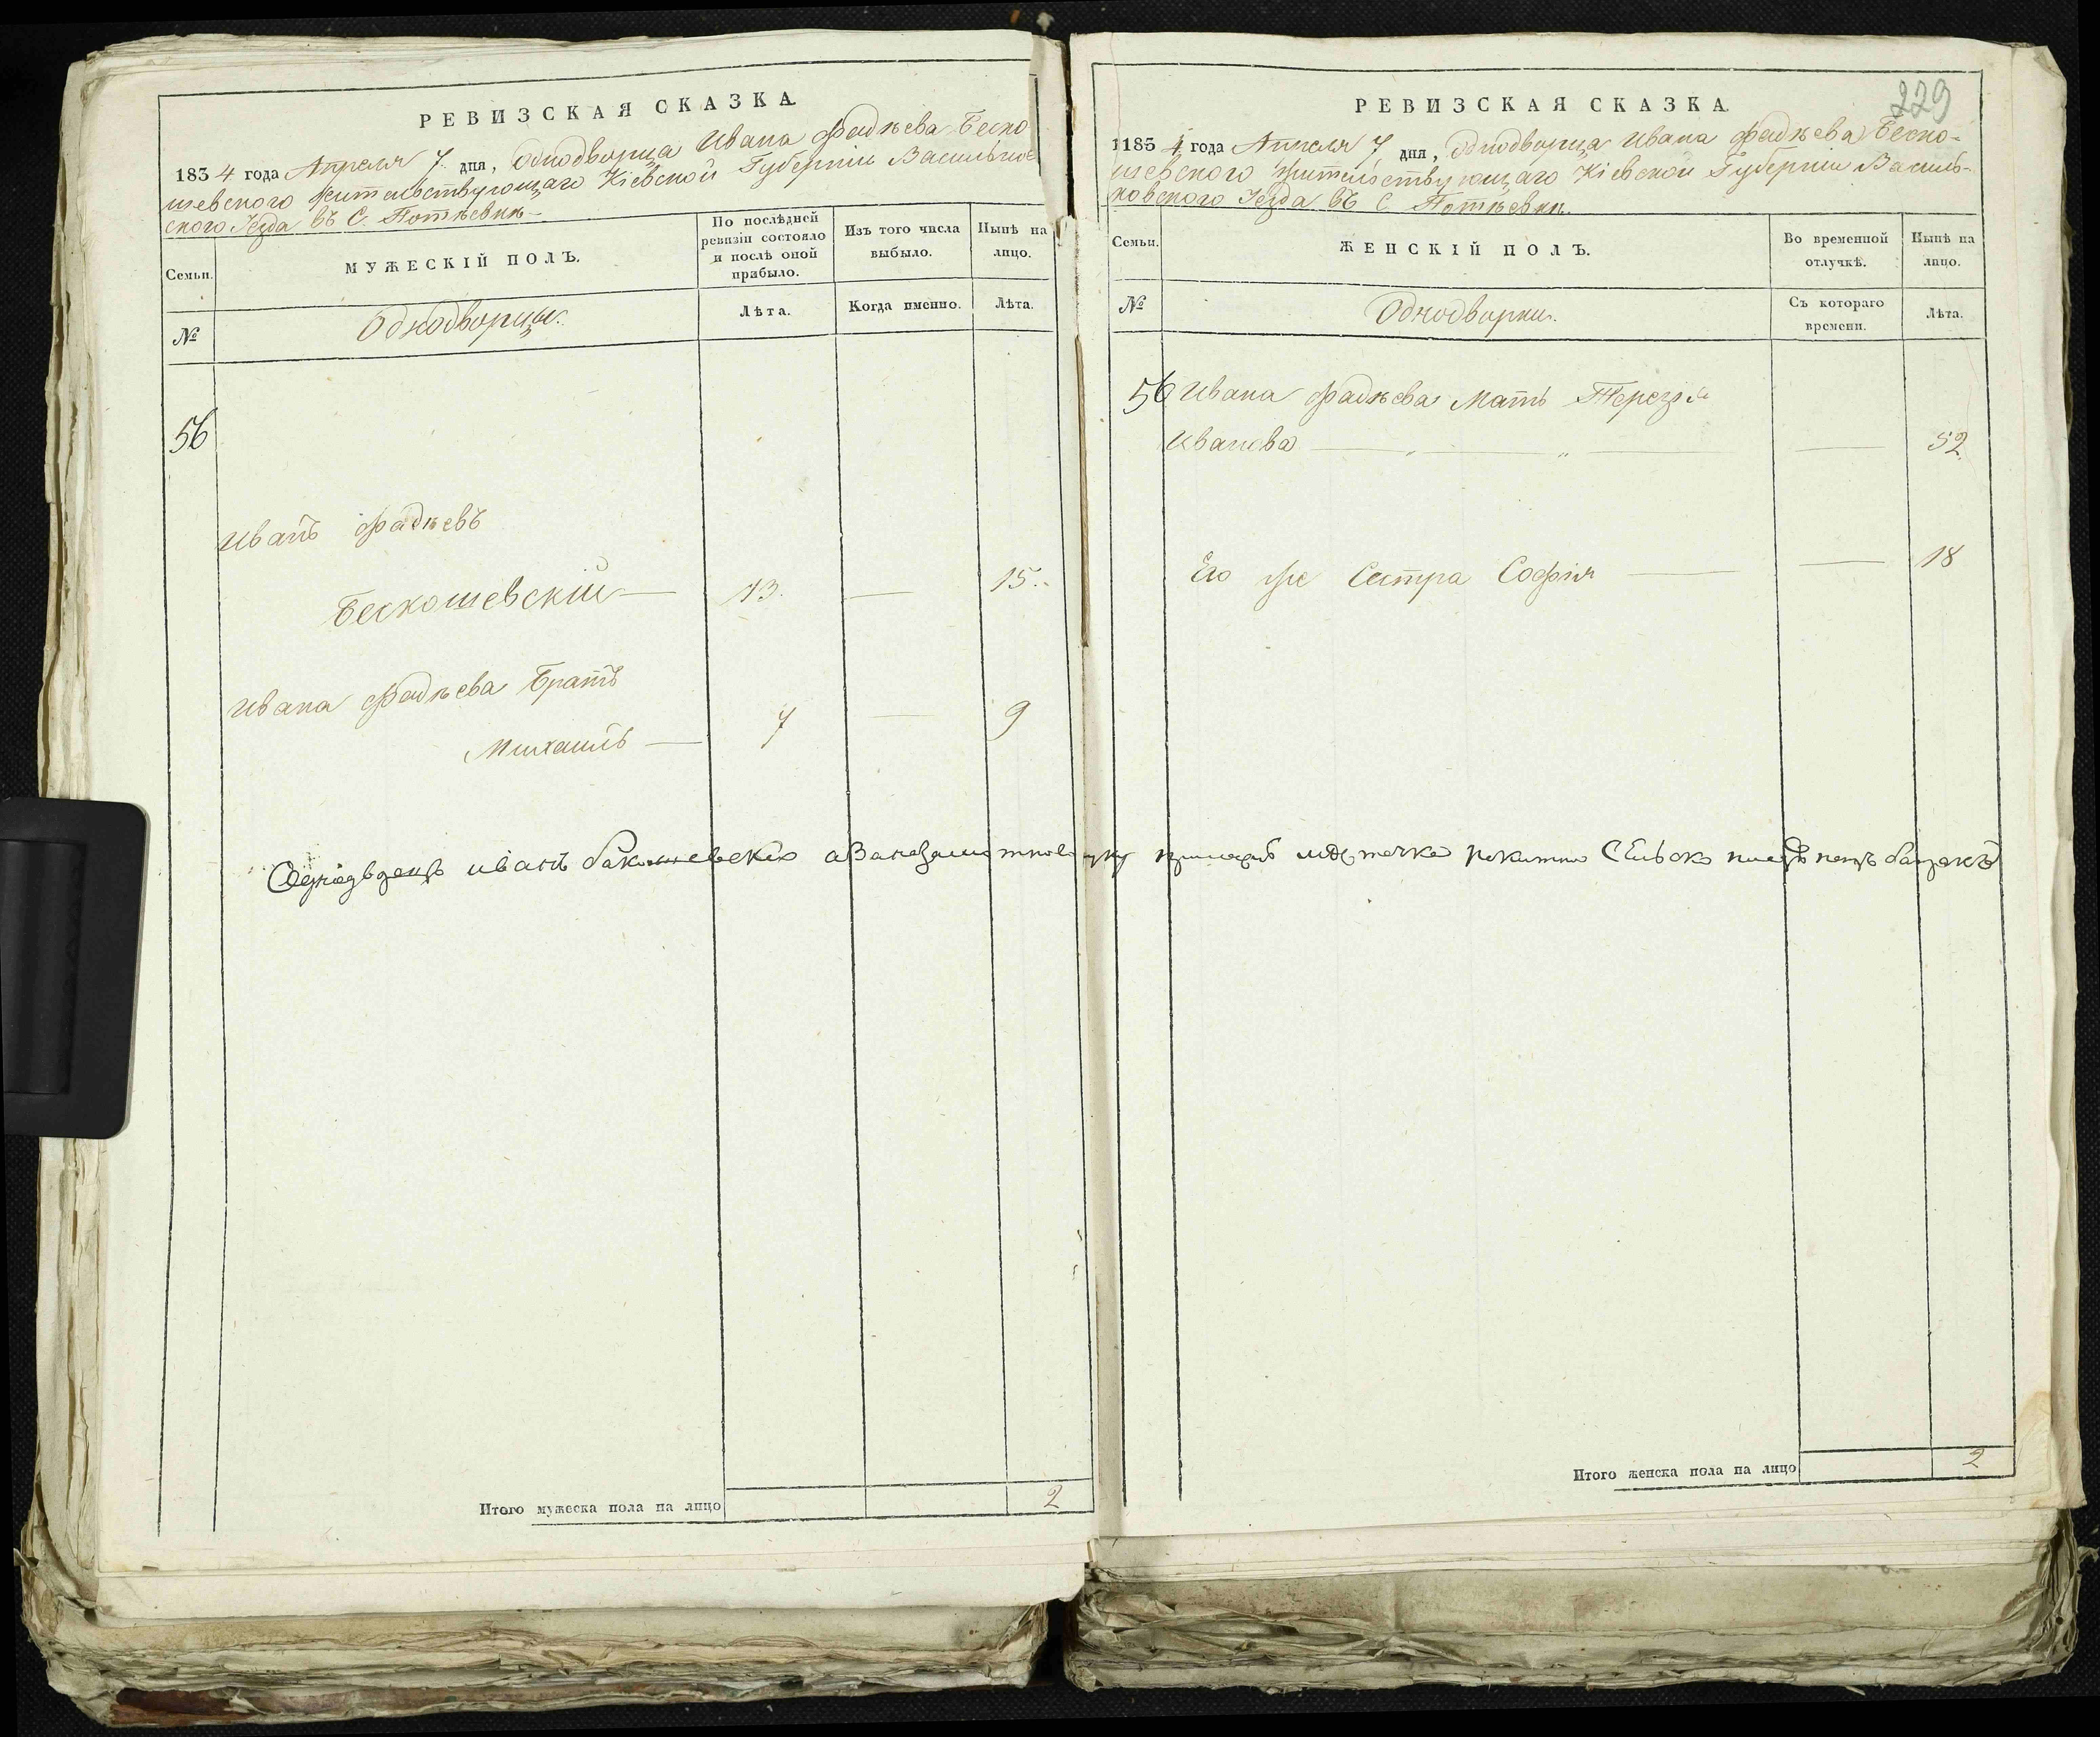 РЕВИЗСКАЯ СКАЗКА
1834 года Апреля 7 дня, Однодворца Ивана Фадѣева Беско
шевского жительствующаго Кіевской Губерніи Васильков
ского Уезда въ С. Потѣевкѣ
Семьи.
МУЖЕСКІЙ ПОЛЪ.
По послѣдней
ревизіи состояло
и послѣ оной
прибыло.
Изъ того числа
выбыло.
Нынѣ на
лицо.
№
Однодворцы.
Лѣта.
Когда именно.
Лѣта.
56
Иванъ Фадѣевъ
Бескошевскій 13. 15.
Ивана Фадѣева Братъ
Михаилъ 7 9
иванъ
Итого мужеска пола на лицо 2
229
РЕВИЗСКАЯ СКАЗКА
1834 года Апреля 7 дня, Однодворца Ивана Фадѣева Беско-
шевского жительствующаго Кіевской Губерніи Василь-
ковского Уезда въ С. Потѣевкѣ.
Семьи.
ЖЕНСКІЙ ПОЛЪ.
Во временной
отлучкѣ.
Нынѣ на
лицо.
№
Однодворки.
Съ котораго
времени.
Лѣта.
56 Ивана Фадѣева Мать Терезія
Иванова 52
Его же Сестра Софія 18
Итого женска пола на лицо 2